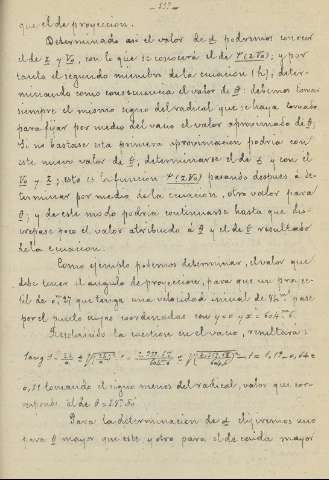 que el de proyeccion.
Determinado asi el valor de α podremos conocer
el de z y V₀, con lo que se conocerá el de Ψ(z V₀); y por
tanto el segundo miembro de la ecuacion (h); deter-
minando como consecuencia el valor de θ: debemos tomar
siempre el mismo signo del radical que se haya tomado
para fijar por medio del vacio el valor aproximado de θ;
Si no bastase esta primera aproximacion podria con
este nuevo valor de θ; determinarse el de z y con él
V₀ y z; esto es la funcion Ψ(z V₀) pasando despues á de-
terminar por medio de la ecuacion, otro valor para
θ; y de este modo podria continuarse hasta que dis-
crepase poco el valor atribuido á θ y el de θ resultado
de la ecuacion.
Como ejemplo podemos determinar, el valor que
debe tener el angulo de proyeccion, para que un proyec-
til de que tenga una velocidad inicial de pase
por el punto cuyas coordenadas son y = 0 y x =
Resolviendo la cuestion en el vacio, resultará:
tang θ =
tomando el signo menos del radical, valor que cor-
responde al de θ =
Para la determinacion de α eligiremos uno
para θ mayor que este y otro para el de caida mayor